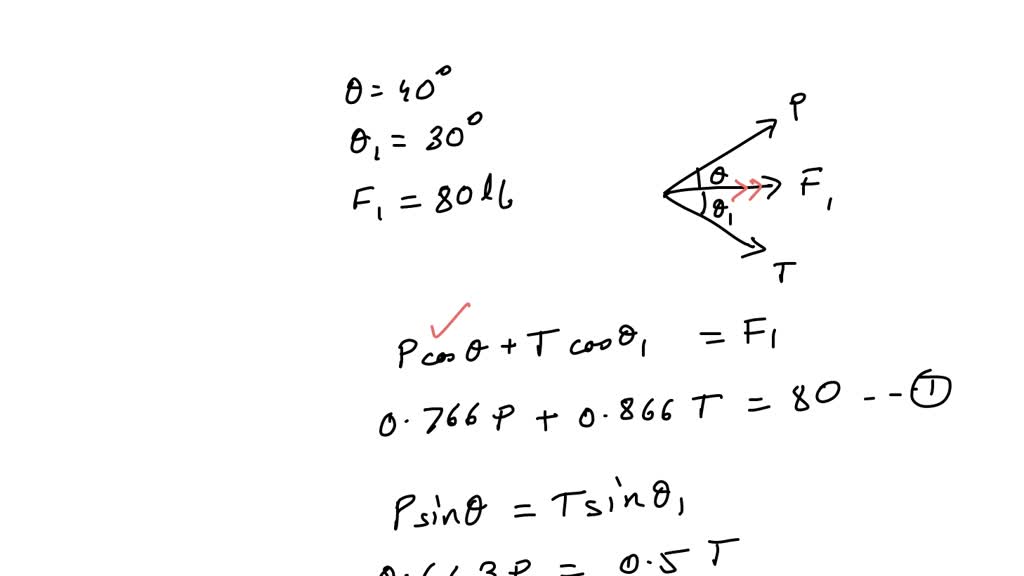 θ = 40°
θ₁ = 30°
F₁ = 80 lb
P
θ
F₁
θ₁
T
P cos θ + T cos θ₁ = F₁
0.766 P + 0.866 T = 80 -- ①
P sin θ = T sin θ₁
= 0.5 T